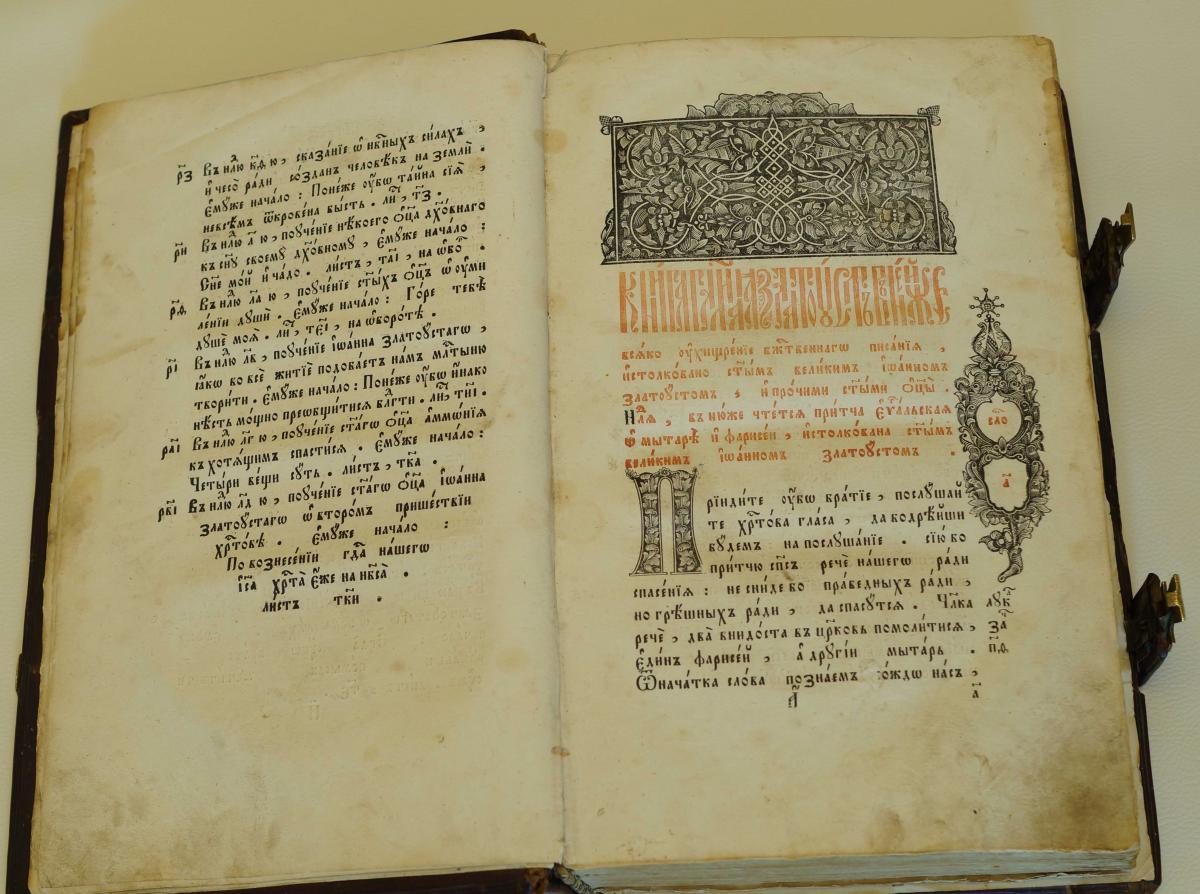 рз҃ Въ нл҃ю кд҃ю , сказа́нїе ѿ нбⷭ҇ныхъ си́лахъ ,
и҆ чесѡ̀ ра́ди со́зданъ человѣ́къ на землѝ .
є҆мꙋ́же нача́ло : Поне́же ᲂу҆́бѡ та́йна сїѧ̀ ,
невсѣ́мъ ѿкрове́на бы́сть . ли́ , тз҃ .
ри҃ Въ нл҃ю л҃ ю , поᲂуче́нїе нѣ́коего ѻ҆ц҃а̀ дх҃о́внаго
къ сн҃ꙋ своемꙋ̀ дх҃о́вномꙋ , є҆мꙋ́же нача́ло :
Сн҃е мо́й и҆ ча́до . ли́стъ , таі҃ , на ѡ҆бо .
рѳ҃ Въ нл҃ю ла҃ ю , поᲂуче́нїе ст҃ы́хъ ѻ҆ц҃ъ ѡ҆ ᲂу҆ми
ле́нїи дꙋшѝ . є҆мꙋ́же нача́ло : Го́ре тебѣ̀
дꙋшѐ моѧ̀ . ли́ , теі҃ , на ѡ҆боро́тѣ .
рі҃ Въ нл҃ю лв҃ , поᲂуче́нїе і҆ѡа́нна златоꙋ́стагѡ ,
ꙗ҆́кѡ во всѐ житїѐ подоба́етъ на́мъ млⷭ҇тыню
твори́ти . є҆мꙋ́же нача́ло : Поне́же ᲂу҆́бѡ и҆на́ко
нѣ́сть мо́щно преѡбщи́тисѧ бл҃гти .
раі҃ Въ нл҃ю лг҃ ю , поᲂуче́нїе ст҃а́гѡ ѻ҆ц҃а̀ а҆ммѡ́нїѧ
къ хотѧ́щимъ спасти́сѧ . є҆мꙋ́же нача́ло :
Четы́ри ве́щи сꙋ́ть . ли́стъ , тка҃ .
рві҃ Въ нл҃ю лд҃ ю , поᲂуче́нїе ст҃а́гѡ ѻ҆ц҃а̀ і҆ѡа́нна
златоꙋ́стагѡ ѡ҆ второ́мъ прише́ствїи
хрⷭ҇то́вѣ . є҆мꙋ́же нача́ло :
По вознесе́нїи гдⷭ҇а на́шегѡ
і҆с҃а хрⷭ҇та̀ є҆́же на нб҃са̀ .
ли́стъ тки҃ .
всѧ́ко ᲂу҆хищре́нїе бжⷭ҇твеннагѡ писа́нїѧ ,
и҆столко́вано ст҃ы́мъ вели́кимъ і҆ѡа́нномъ
златоꙋ́стомъ , и҆ про́чими ст҃ы́ми ѻ҆ц҃ы̀ .
Нлⷣѧ , въ ню́же чте́тсѧ при́тча є҆ѵⷢ҇альская
ѡ҆ мытарѣ̀ и҆ фарисе́и , и҆столко́вана ст҃ы́мъ
вели́кимъ і҆ѡа́нномъ златоꙋ́стомъ .
сло
а҃
Прїиди́те ᲂу҆́бѡ бра́тїе , послꙋ́шай
те хрⷭ҇то́ва гла́са , да бодрѣ́йши
бꙋ́демъ на послꙋша́нїе . сїю́ бо
при́тчю сп҃съ речѐ на́шегѡ ра́ди
спасе́нїѧ : не сни́де бо пра́ведныхъ ра́ди ,
но грѣ́шныхъ ра́ди , да спасꙋ́тсѧ . Чл҃ка лꙋк
речѐ , два̀ внидо́ста въ цр҃ковь помоли́тисѧ , за
є҆ди́нъ фарисе́й , а҆ дрꙋгі́и мыта́рь . пѳ҃
Ѿ нача́тка сло́ва позна́емъ о́ждѡ на́съ ,
а҃ а҃